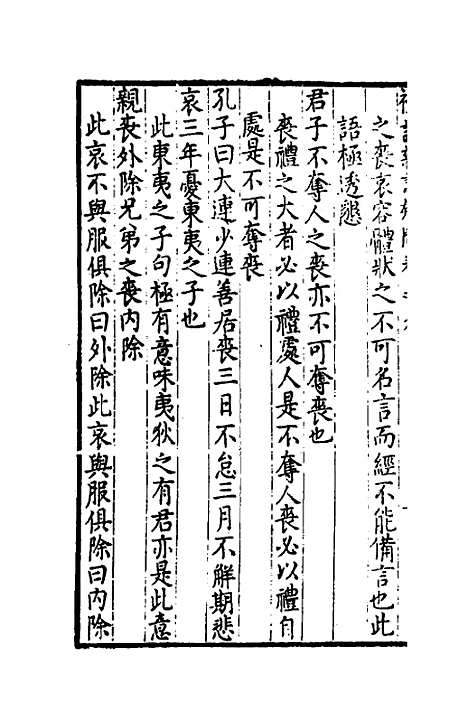 之喪哀容體狀之不可名言而經不能備言也此
語極透懇
君子不奪人之喪亦不可奪喪也
喪禮之大者必以禮處人是不奪人喪必以禮自
處是不可奪喪
孔子曰大連少連善居喪三日不怠三月不解期悲
哀三年憂東夷之子也
此東夷之子句極有意味夷狄之有君亦是此意
親喪外除兄弟之喪內除
此哀不與服俱除曰外除此哀與服俱除曰內除